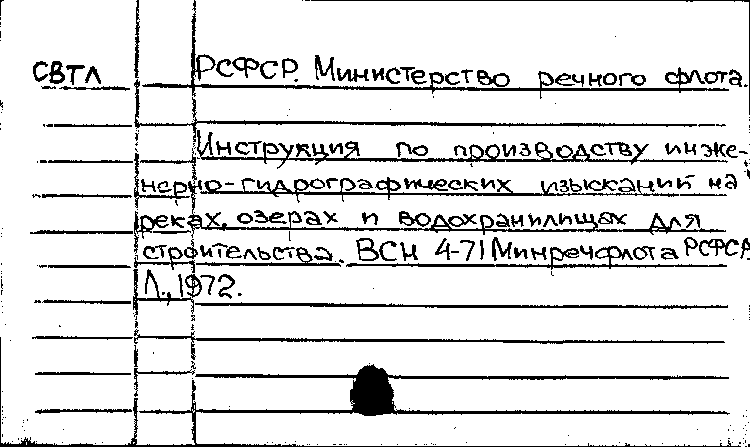 СВТЛ РСФСР. Министерство речного флота.
Инструкция по производству инже-
нерно-гидрографических изысканий на
реках, озерах и водохранилищах для
строительства. ВСН 4-71 Минречфлота РСФСР.
Л., 1972.